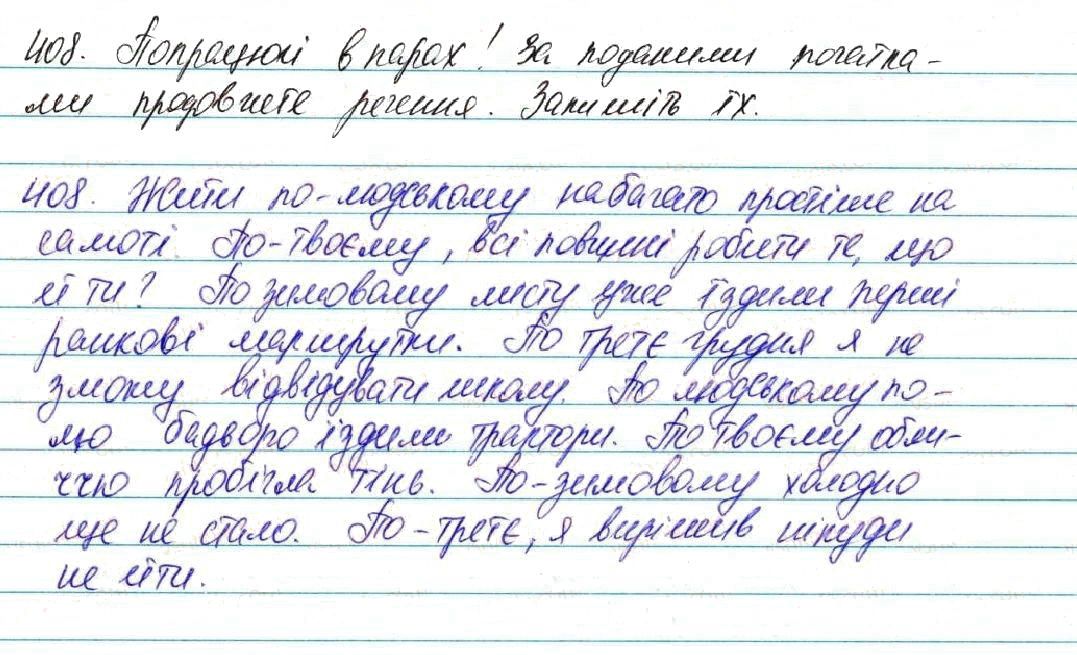 408. Попрацюй в парах! За поданими початка-
ми продовжете речення. Запишіть їх.
408. Жити по-людському набагато простіше на
самоті. По-твоєму, всі повинні робити те, що
й ти? По зимовому місту уже їздили перші
ранкові маршрутки. По третє грудня я не
зможу відвідувати школу. По людському по-
лю бадьоро їздили трактори. По твоєму обли-
ччю пробігла тінь. По-зимовому холодно
ще не стало. По-третє, я вирішив нікуди
не йти.